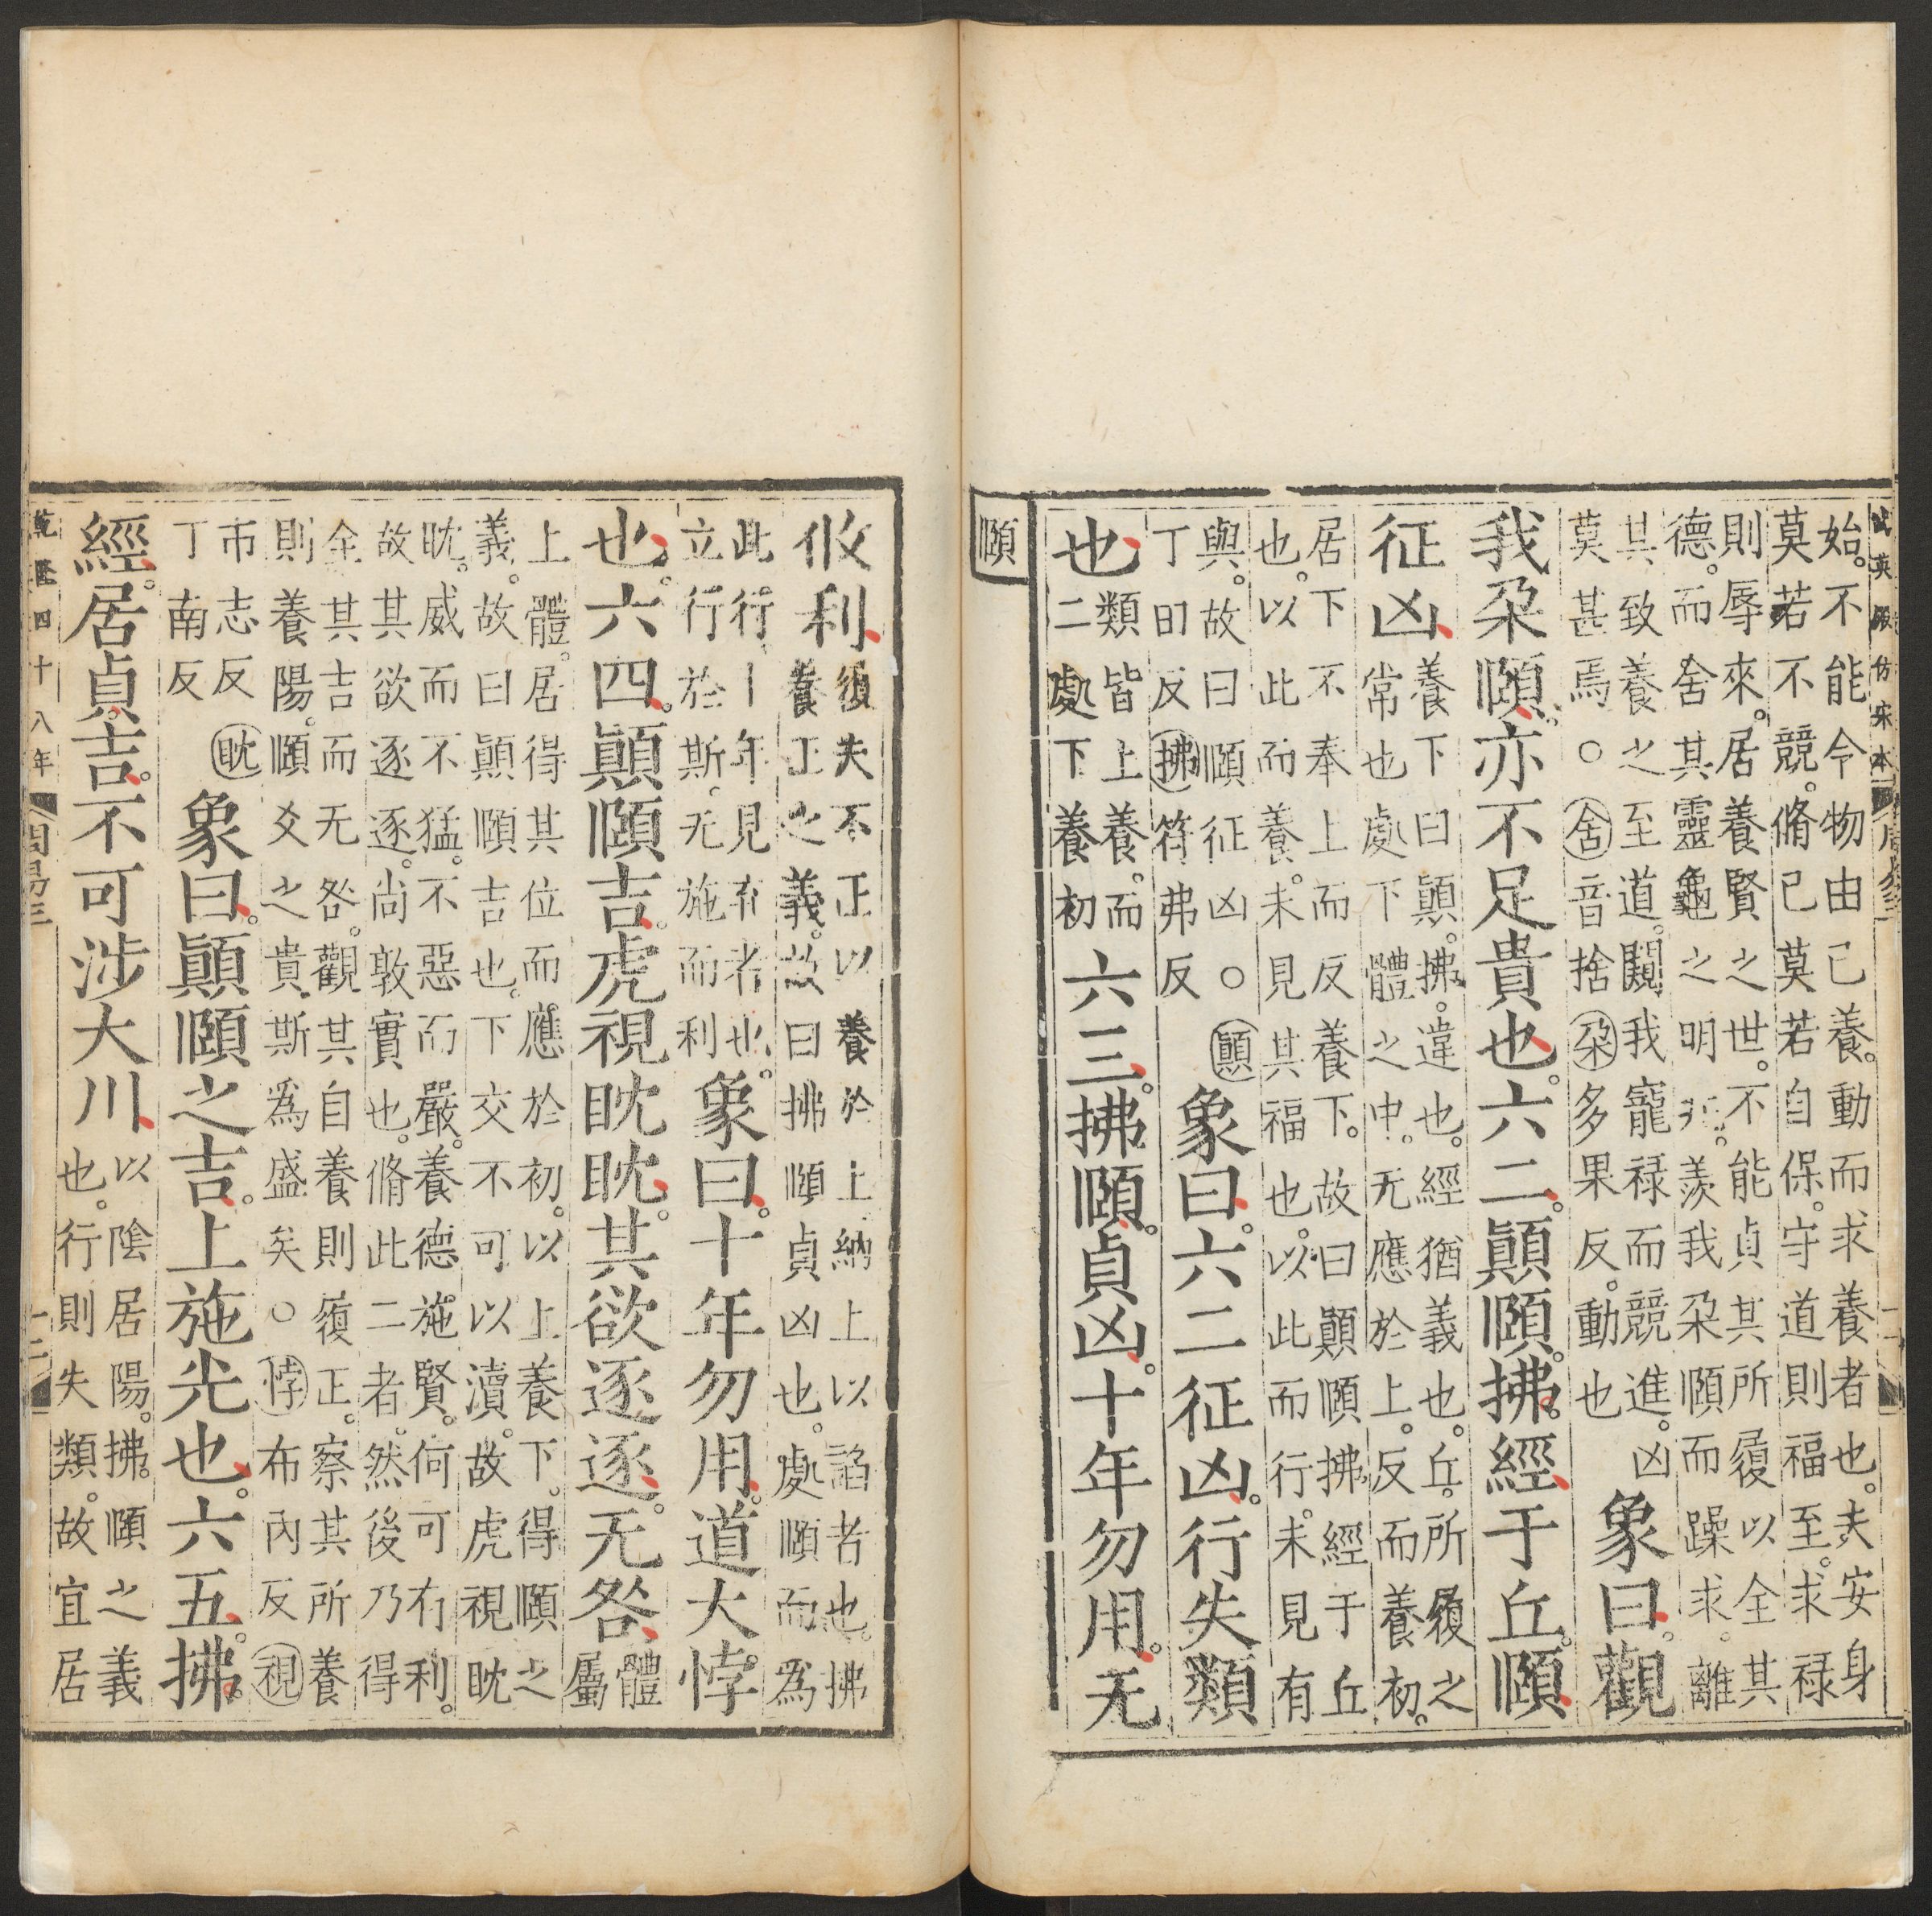 武英殿仿宋本 周易三 十一
始不能令物由己養動而求養者也夫安身
莫若不競脩己莫若自保守道則福至求祿
則辱來居養賢之世不能貞其所履以全其
德而舍其靈龜之明兆羨我朶頤而躁求離
其致養之至道闚我寵祿而競進凶
莫甚焉○舍音捨朶多果反動也
象曰觀
我朶頤亦不足貴也六二顚頤拂經于丘頤
征凶
養下曰顚拂違也經猶義也丘所履之
常也處下體之中无應於上反而養初
居下不奉上而反養下故曰顚頤拂經于丘
也以此而養未見其福也以此而行未見有
與故曰頤征凶○顚
丁田反拂符弗反
象曰六二征凶行失類
也
類皆上養而
二處下養初
六三拂頤貞凶十年勿用无
頤
攸利
履夫不正以養於上納上以諂者也拂
養正之義故曰拂頤貞凶也處頤而爲
此行十年見棄者也
立行於斯无施而利
象曰十年勿用道大悖
也六四顚頤吉虎視眈眈其欲逐逐无咎
體
屬
上體居得其位而應於初以上養下得頤之
義故曰顚頤吉也下交不可以瀆故虎視眈
眈威而不猛不惡而嚴養德施賢何可有利
故其欲逐逐尚敦實也脩此二者然後乃得
全其吉而无咎觀其自養則履正察其所養
則養陽頤爻之貴斯爲盛矣○悖布內反視
市志反眈
丁南反
象曰顚頤之吉上施光也六五拂
經居貞吉不可涉大川
以陰居陽拂頤之義
也行則失類故宜居
乾隆四十八年 周易三 十二